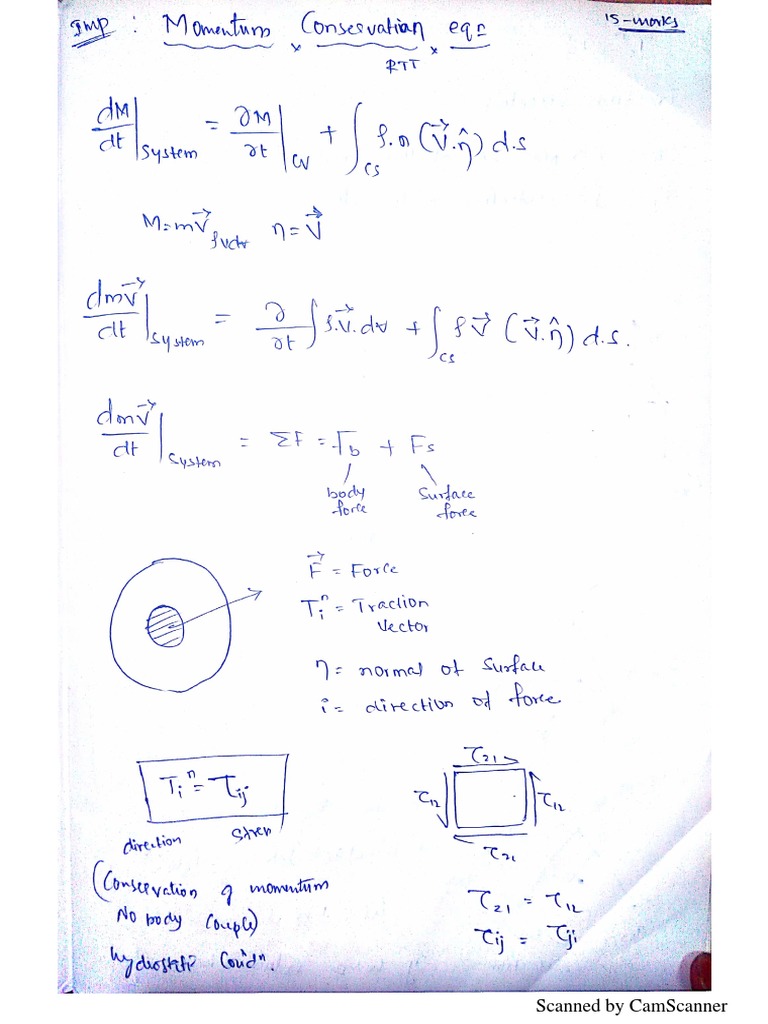 Imp : Momentum Conservation eqn 15-marks
RTT
dM/dt |System = ∂M/∂t |CV + ∫CS ρ.n (V⃗.η̂) d.s
M=mV⃗ η = V⃗
dmV⃗/dt |System = ∂/∂t ∫ρ.V⃗.d∀ + ∫CS ρV⃗ (V⃗.η̂) d.s.
dmV⃗/dt |System = ΣF = Fb + Fs
body surface
force force
F⃗ = Force
Tiⁿ = Traction
Vector
η = normal of surface
i = direction of force
Tiⁿ = τij
direction
τ21
τ12 τ12
τ21
(Conservation of momentum
No body couple)
hydrostati Condn.
τ21 = τ12
τij = τji
Scanned by CamScanner